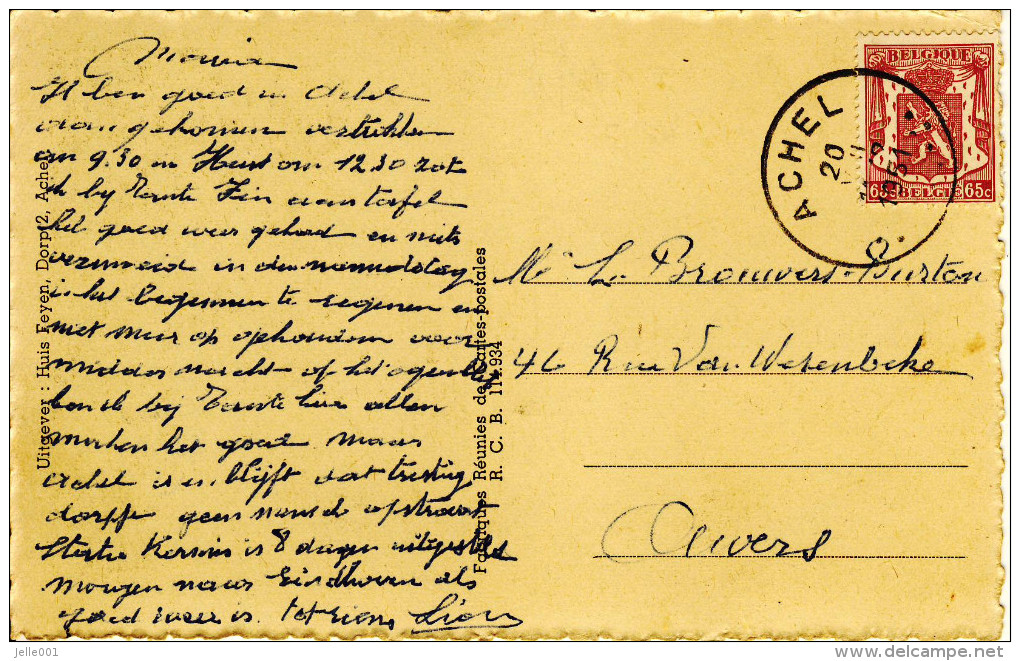 Ik ben goed in Achel
aangekomen vertrokken
om 9.30 in Heist om 12.30 zat
ik bij Tante Fin aan tafel
het goed weer gehad en niets
in den namiddag
is het begonnen te regenen en
niet meer op ophouden voor
middernacht op het ogenblik
ben ik bij Tante hier allen
maken het goed maar
Achel is en blijft wat treurig
dorpje geen mensch op straat
is 8 dagen uitgesteld
Morgen naar Eindhoven als
goed weer is.
Uitgever : Huis Feyen, Dorp 2, Achel
Fabriques Réunies de Cartes-postales
R. C. B. 111.934
BELGIQUE
65c BELGIE 65c
ACHEL
20
1951
Brouwers-Durton
46 Rue Van Wesenbeke
Anvers
jelle001
www.delcampe.net